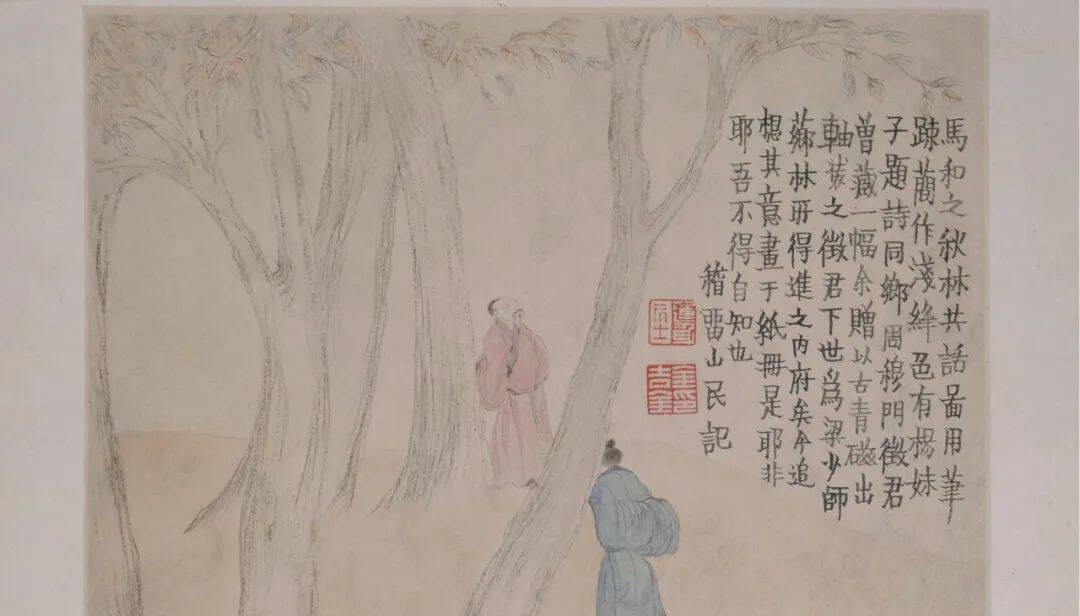 馬和之秋林共話啚用筆
踈蕳作淺絳色有楊妹
子題詩同鄉周穆門徵君
曾藏一幅余贈以古青磁出
軸裝之徵君下世為梁少師
薌林所得進之內府矣今追
想其意畫于紙冊是耶非
耶吾不得自知也
稽畱山民記
金吉金印